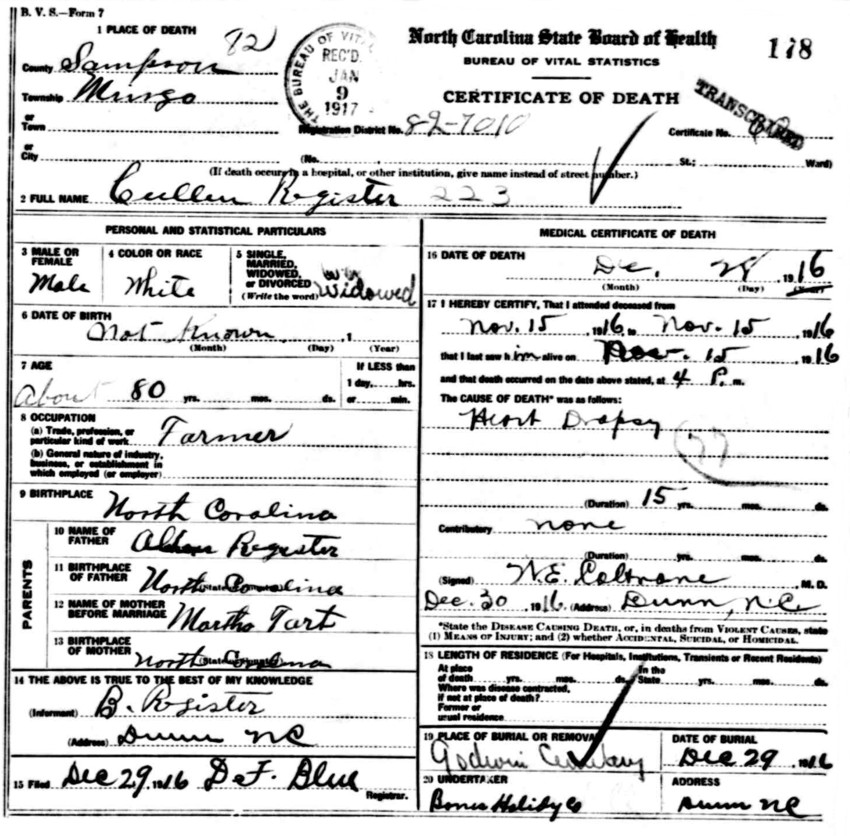 B. V. S.—Form 7
1 PLACE OF DEATH 82
County Sampson
Township Mingo
or
Town
or
City
THE BUREAU OF VITAL
REC'D.
JAN
9
1917
North Carolina State Board of Health
BUREAU OF VITAL STATISTICS
CERTIFICATE OF DEATH
178
TRANSCRIBED
Registration District No. 82-7010 Certificate No.
(No. , St.; Ward)
(If death occurs in a hospital, or other institution, give name instead of street number.)
2 FULL NAME Cullen Register 223
PERSONAL AND STATISTICAL PARTICULARS
3 MALE OR FEMALE Male
4 COLOR OR RACE White
5 SINGLE, MARRIED, WIDOWED, or DIVORCED (Write the word) Widowed
6 DATE OF BIRTH
Not Known, 1
(Month) (Day) (Year)
7 AGE
About 80 yrs. mos. ds.
If LESS than
1 day, hrs.
or min.
8 OCCUPATION
(a) Trade, profession, or
particular kind of work Farmer
(b) General nature of industry,
business, or establishment in
which employed (or employer)
9 BIRTHPLACE North Carolina
PARENTS
10 NAME OF
FATHER Register
11 BIRTHPLACE
OF FATHER North Carolina
12 NAME OF MOTHER
BEFORE MARRIAGE Martha Tart
13 BIRTHPLACE
OF MOTHER North Carolina
14 THE ABOVE IS TRUE TO THE BEST OF MY KNOWLEDGE
(Informant) B. Register
(Address) Dunn NC
15 Filed Dec 29 1916 D.F. Blue
Registrar.
MEDICAL CERTIFICATE OF DEATH
16 DATE OF DEATH
Dec. 28, 1916
(Month) (Day) (Year)
17 I HEREBY CERTIFY, That I attended deceased from
Nov. 15, 1916, to Nov. 15, 1916
that I last saw him alive on Nov. 15 1916
and that death occurred on the date above stated, at 4 P. m.
The CAUSE OF DEATH* was as follows:
Heart Dropsy
77
(Duration) 15 yrs. mos. ds.
Contributory none
(Duration) yrs. mos. ds.
(Signed) W.E. Coltrane, M. D.
Dec. 30 1916. (Address) Dunn, N.C.
*State the DISEASE CAUSING DEATH, or, in deaths from VIOLENT CAUSES, state
(1) MEANS OF INJURY; and (2) whether ACCIDENTAL, SUICIDAL, or HOMICIDAL.
18 LENGTH OF RESIDENCE (For Hospitals, Institutions, Transients or Recent Residents)
At place
of death yrs. mos. ds. In the State yrs. mos. ds.
Where was disease contracted,
if not at place of death?
Former or
usual residence
19 PLACE OF BURIAL OR REMOVAL
Godwin Cemetery
DATE OF BURIAL
Dec 29, 1916
20 UNDERTAKER
ADDRESS
Dunn NC